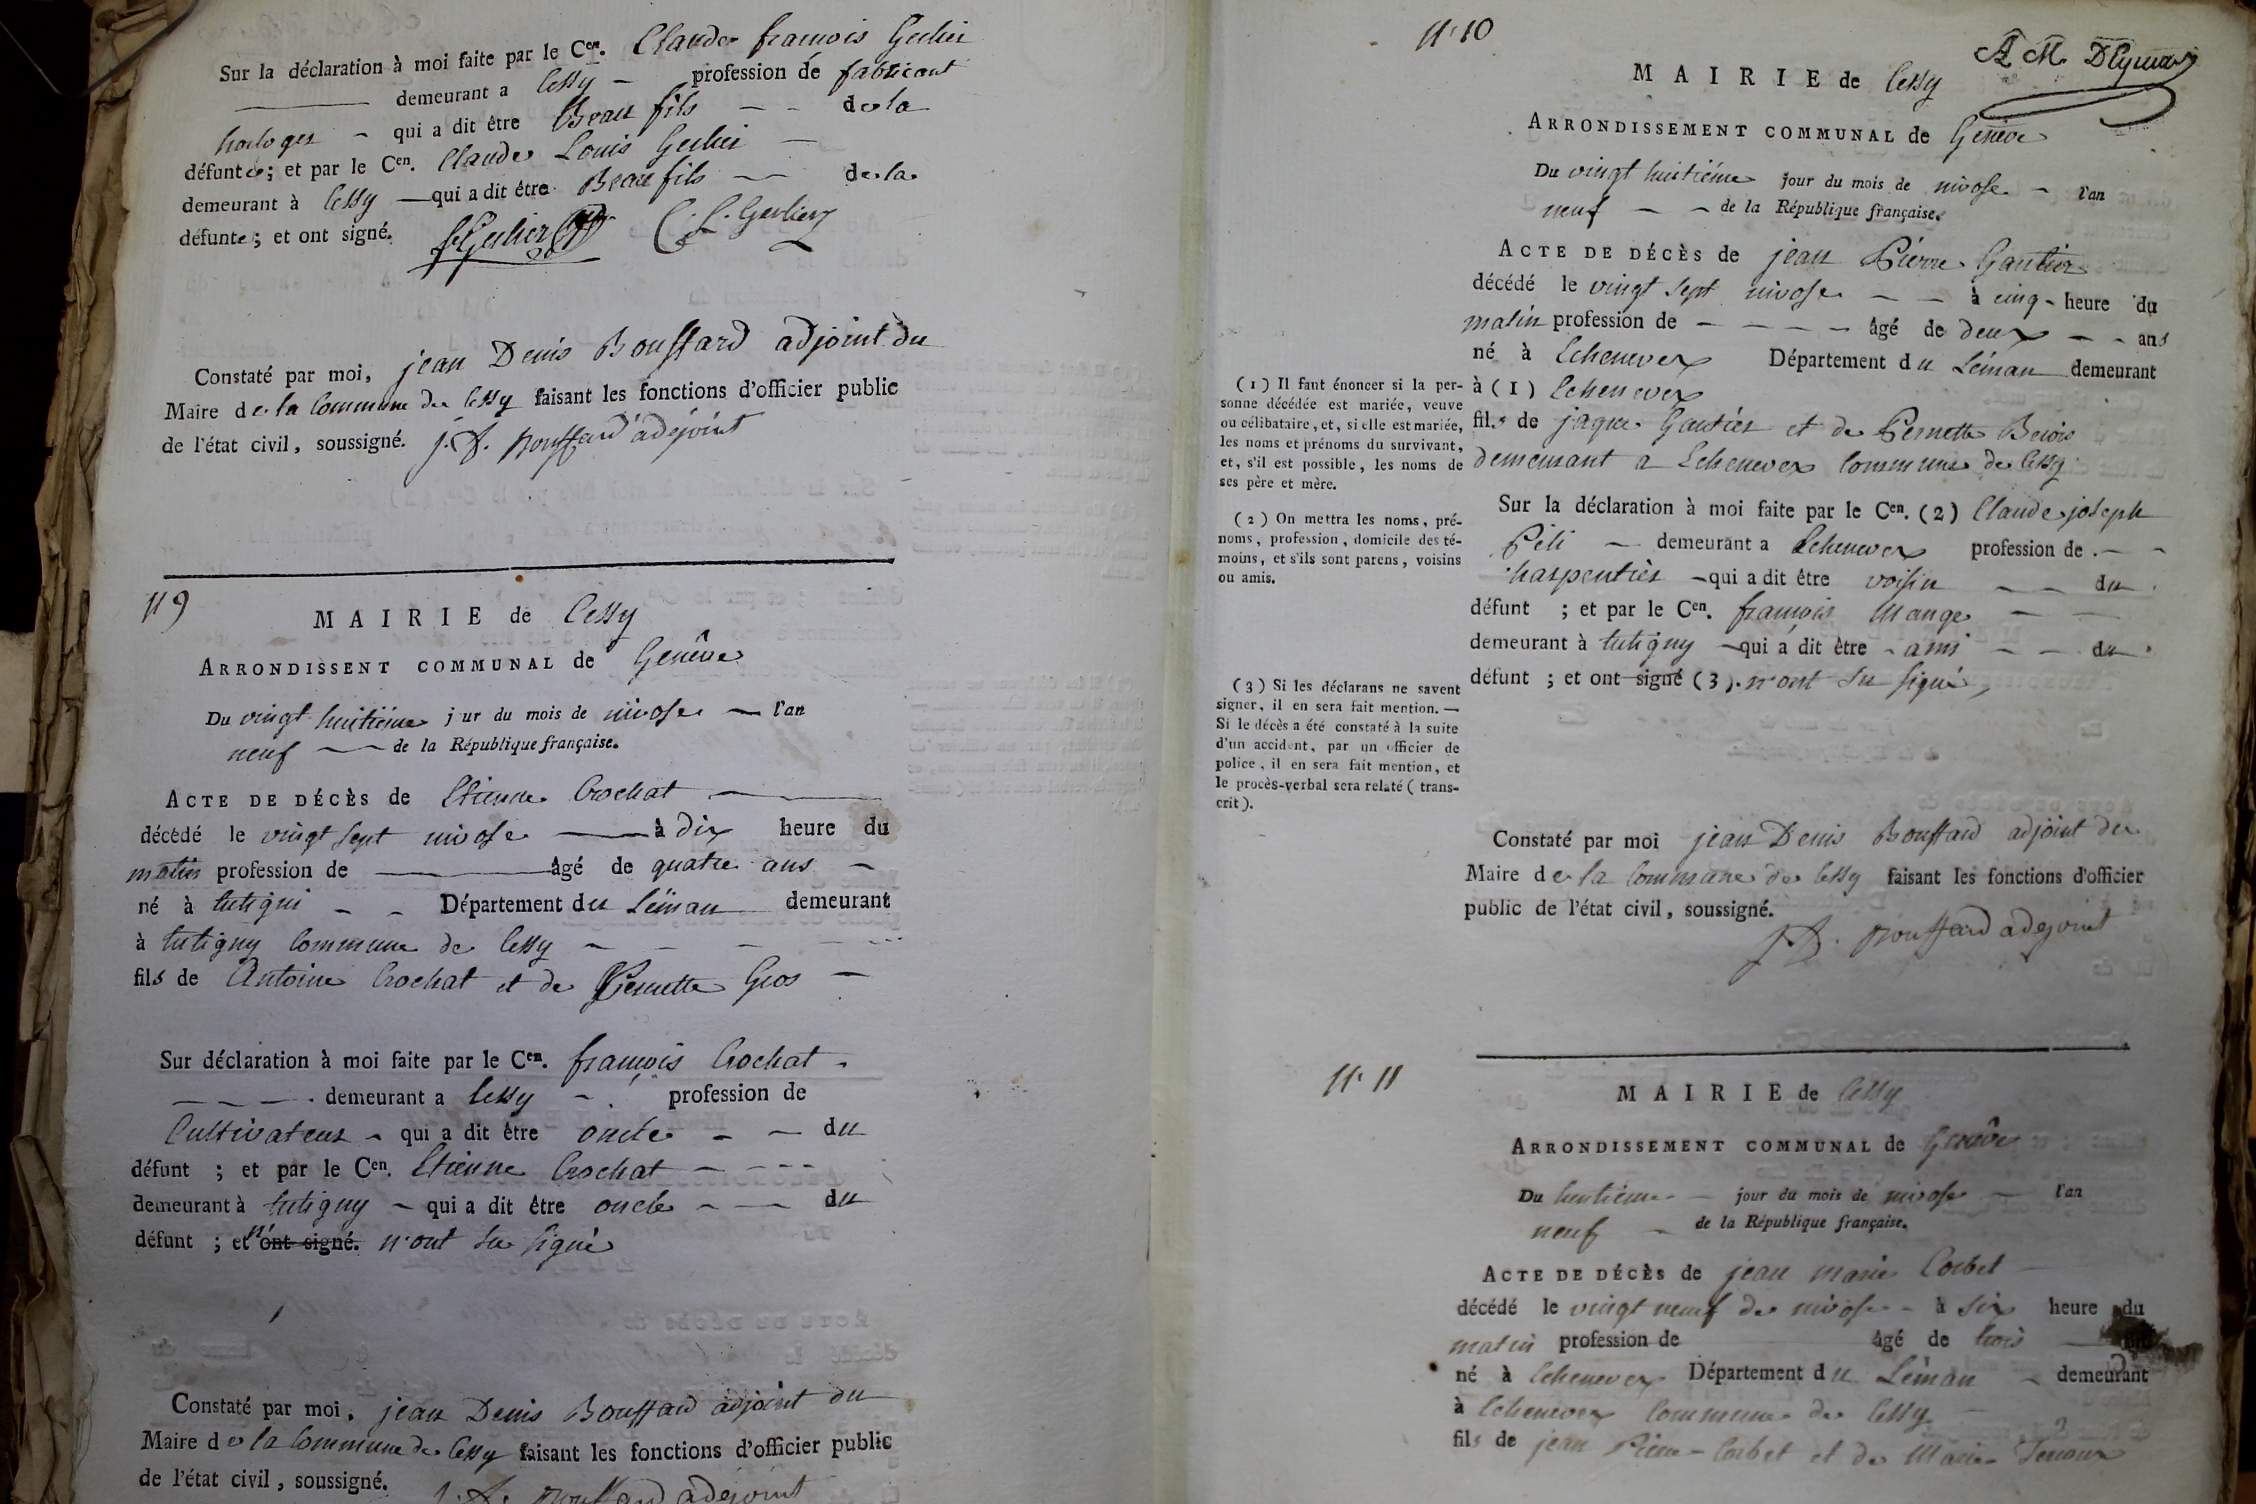 Sur la déclaration à moi faite par le Cen. Claude françois Gerlier
demeurant a Cessy profession de fabricant
horloger qui a dit être Beau fils de la
défunte ; et par le Cen. Claude Louis Gerlier
demeurant à Cessy qui a dit être Beau fils de la
défunte ; et ont signé. C. L. Gerlier
Constaté par moi, jean Denis Bouffard adjoint du
Maire de la Commune de Cessy faisant les fonctions d'officier public
de l'état civil, soussigné. J. D. Bouffard adejoint
N 9
MAIRIE de Cessy
ARRONDISSENT COMMUNAL de Genêve
Du vingt huitième j ur du mois de nivose l'an
neuf de la République française.
ACTE DE DÉCÈS de Etienne Crochat
décédé le vingt sept nivose à dix heure du
matin profession de âgé de quatre ans
né à tutigni Département du Léman demeurant
à tutigny Commune de Cessy
fils de Antoine Crochat et de Pernette Gros
Sur déclaration à moi faite par le Cen. françois Crochat
demeurant a Cessy profession de
Cultivateur qui a dit être oncle du
défunt ; et par le Cen. Etienne Crochat
demeurant à tutigny qui a dit être oncle du
défunt ; et n'ont signé. n'ont su signé
Constaté par moi, jean Denis Bouffard adjoint du
Maire de la Commune de Cessy faisant les fonctions d'officier public
de l'état civil, soussigné. J. D. Bouffard adejoint
N° 10
MAIRIE de Cessy
ARRONDISSEMENT COMMUNAL de Genêve
Du vingt huitième jour du mois de nivose l'an
neuf de la République française.
ACTE DE DÉCÈS de jean Pierre Gautier
décédé le vingt sept nivose à cinq heure du
matin profession de âgé de deux ans
né à Echenevex Département du Léman demeurant
à (1) Echenevex
fils de jaque Gautier et de Pernette
demeurant a Echenevex Commune de Cessy
Sur la déclaration à moi faite par le Cen. (2) Claude joseph
demeurant a Echenevex profession de
charpentier qui a dit être voisin du
défunt ; et par le Cen. françois Mange
demeurant à tutigny qui a dit être ami du
défunt ; et ont signé (3). n'ont su signé,
(1) Il faut énoncer si la per-
sonne décédée est mariée, veuve
ou célibataire, et, si elle est mariée,
les noms et prénoms du survivant,
et, s'il est possible, les noms de
ses père et mère.
(2) On mettra les noms, pré-
noms, profession, domicile des té-
moins, et s'ils sont parens, voisins
ou amis.
(3) Si les déclarans ne savent
signer, il en sera fait mention. —
Si le décès a été constaté à la suite
d'un accident, par un officier de
police, il en sera fait mention, et
le procès-verbal sera relaté (trans-
crit).
Constaté par moi jean Denis Bouffard adjoint du
Maire de la Commune de Cessy faisant les fonctions d'officier
public de l'état civil, soussigné.
J. D. Bouffard adejoint
N° 11
MAIRIE de Cessy
ARRONDISSEMENT COMMUNAL de Genêve
Du huitième jour du mois de nivose l'an
neuf de la République française.
ACTE DE DÉCÈS de jean marie Corbet
décédé le vingt neuf de nivose à six heure du
matin profession de âgé de trois
né à Echenevex Département du Léman demeurant
à Echenevex Commune de Cessy
fils de jean Pierre Corbet et de Marie